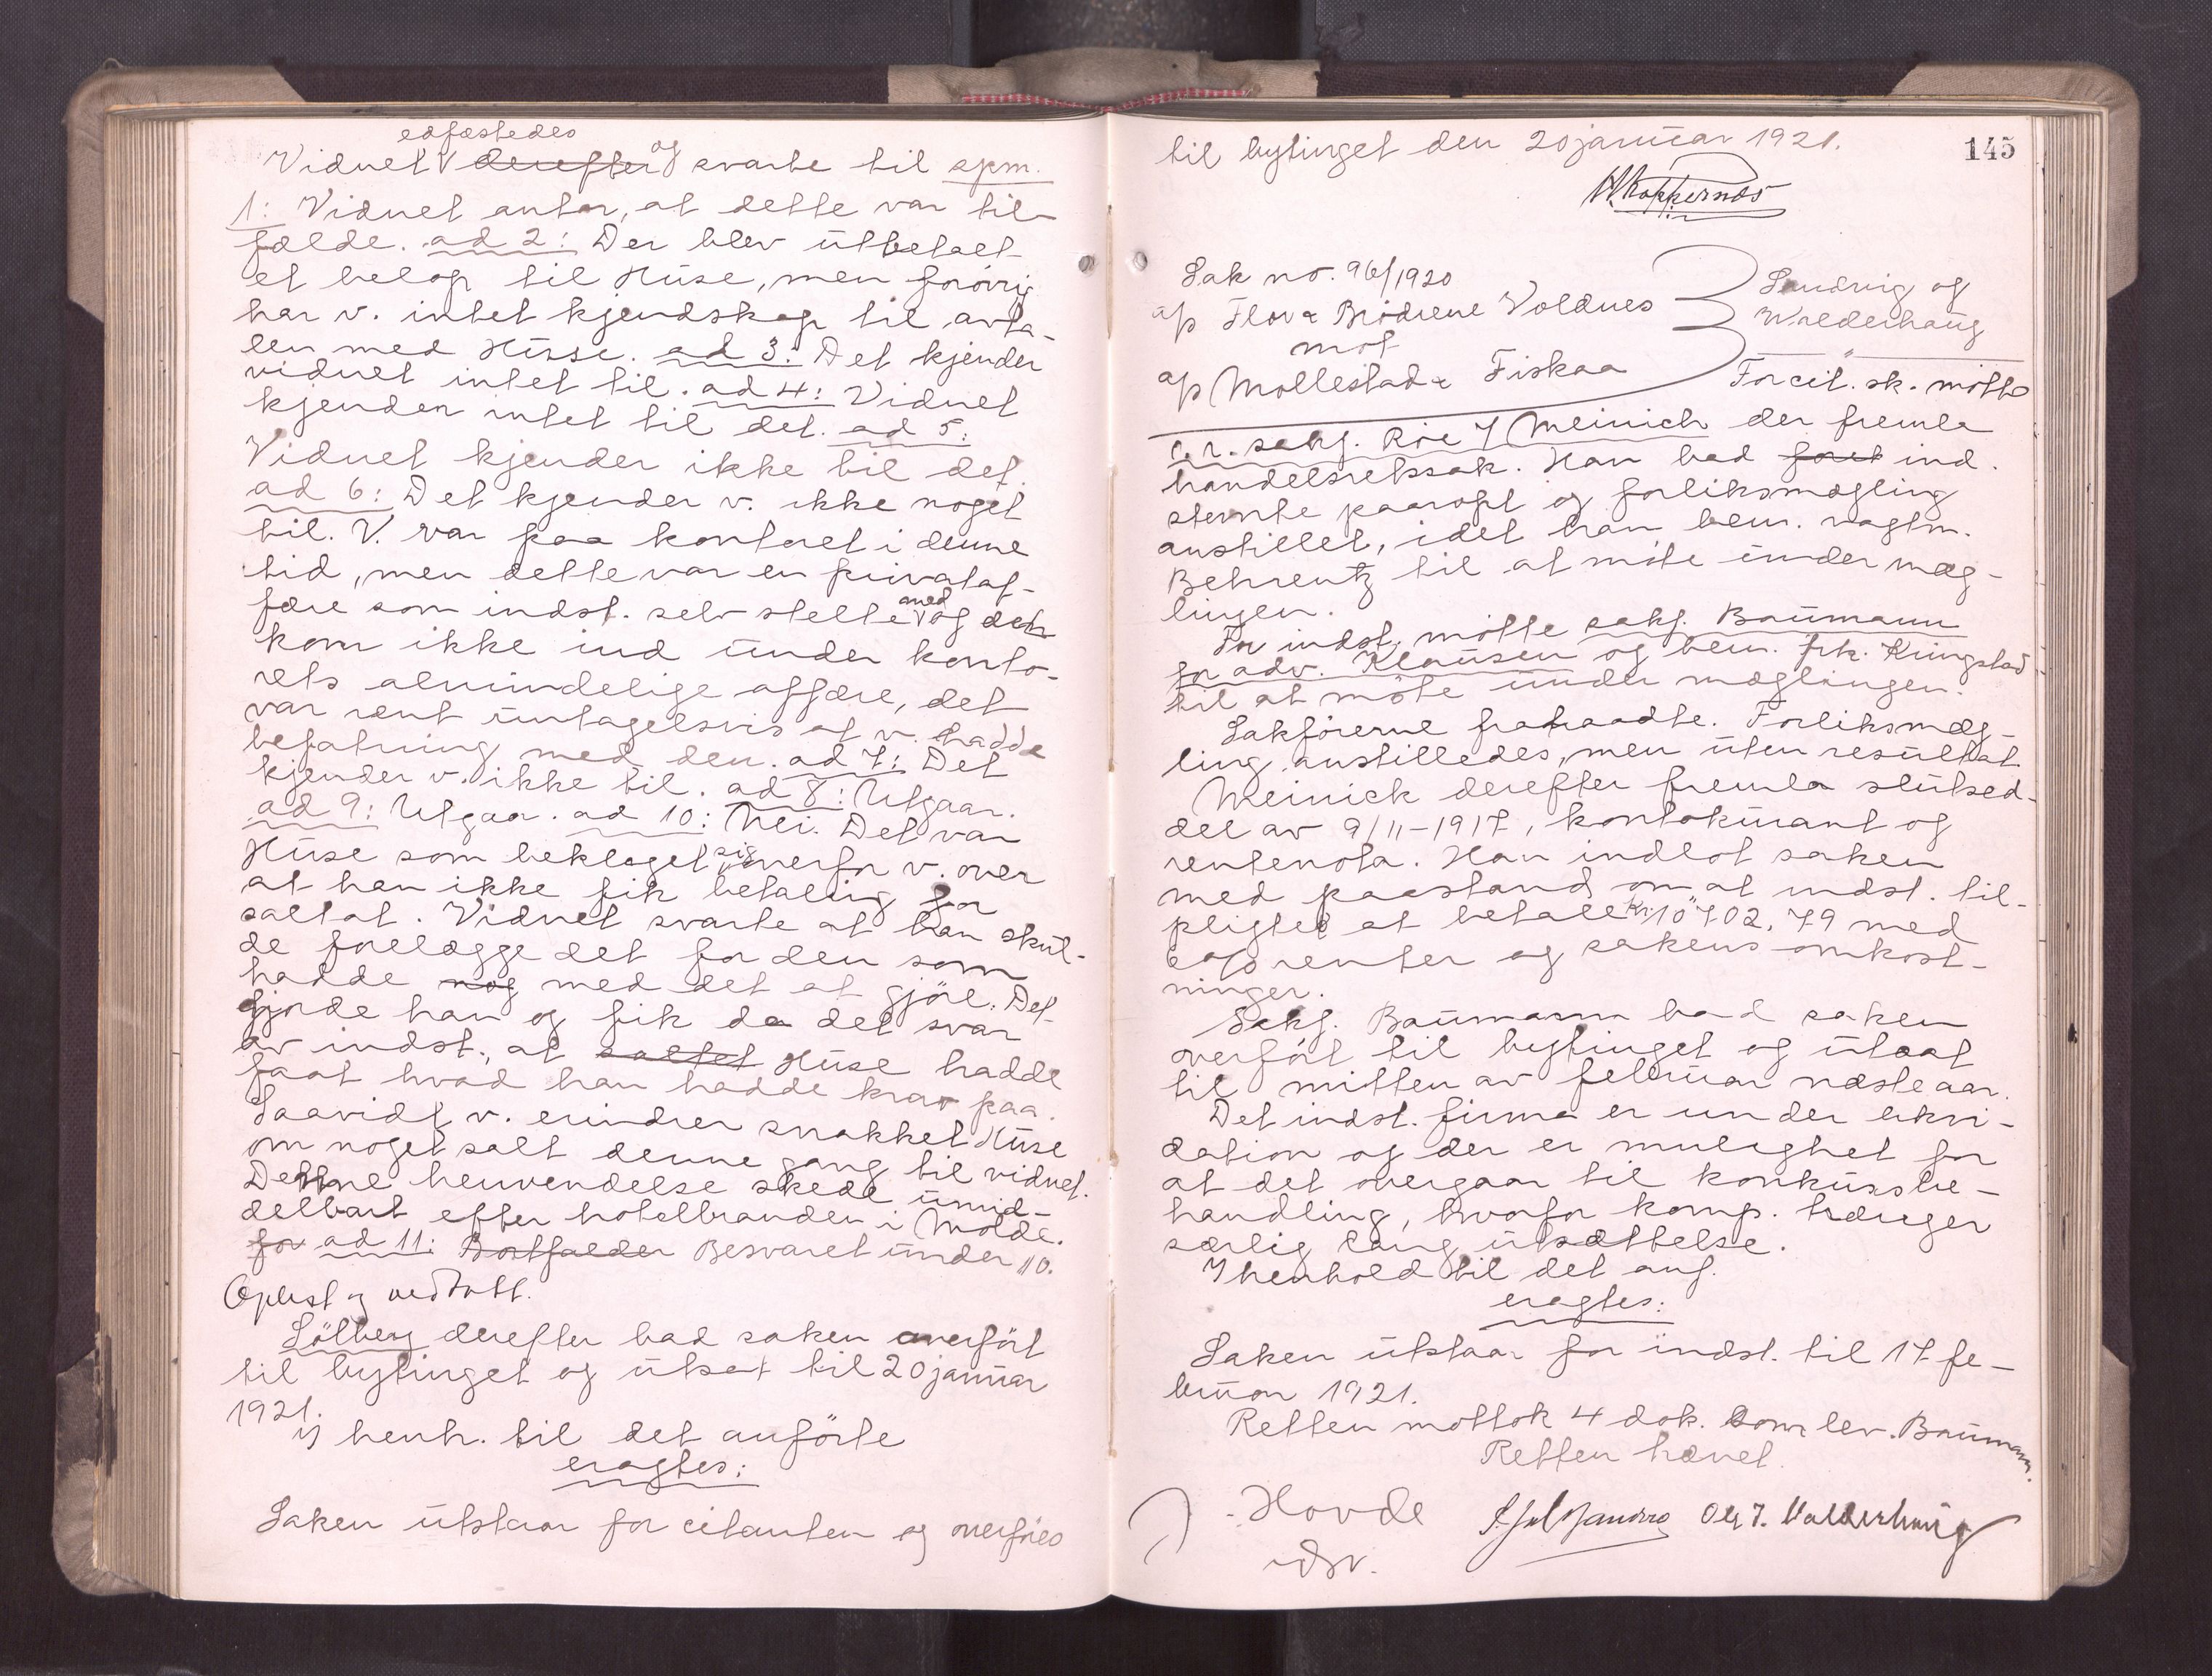 edfæstedes
Vidnet derefter og svarte til spm.
1: Vidnet antar, at dette var til-
fælde. ad 2: Der blev utbetalt
et beløp til Huse, men forøvrig
har v. intet kjendskap til avta-
len med Husse. ad 3: Det kjender
vidnet intet til. ad 4: Vidnet
kjender intet til det. ad 5:
Vidnet kjender ikke til det.
ad 6: Det kjender v. ikke noget
til. V. var paa kontoret i denne
tid, men dette var en privataf-
fære som indst. selv stelte med og den
kom ikke ind under konto-
rets almindelige affære, det
var rent untagelsvis at v. hadde
befatning med den. ad 7: Det
kjender v. ikke til. ad 8: Utgaar.
ad 9: Utgaar. ad 10: Nei. Det var
Huse som beklaget sig overfor v. over
at han ikke fik betaling for
saltat. Vidnet svarte at han skul-
de forelægge det for den som
hadde nog med det at gjøre. Det
gjorde han og fik da det svar
av indst., at saltet Huse hadde
faat hvad han hadde krav paa.
Saavidt v. erindrer snakket Huse
om noget salt denne gang til vidnet.
Denne henvendelse skede umid-
delbart efter hotelbranden i Molde.
for ad 11: Bortfalder Besvaret under 10.
Oplæst og vedtatt.
Sölberg derefter bad saken overført
til bytinget og utsat til 20 januar
1921.
I henh. til det anførte
eragtes:
Saken utstaar for citanten og overføres
145
til bytinget den 20 januar 1921.
Koppernæs
Sak no. 96/1920
a/s Flov & Brødrene Voldnes
mot
a/s Mollestad & Fiskaa
Sandvig og
Walderhaug
For cit. sk. møtte
o.r. sakf. Roe y Meinich der fremla
handelsretssak. Han bad foret ind.
stevnte paaropt og forliksmægling
anstillet, idet han bem. vagtm.
Behrentz til at møte under mæg-
lingen.
For indst. møtte sakf. Baumann
for adv. Klausen og bem. frk. Kringstad
til at møte under mæglingen.
Sakførerne fratraadte. Forliksmæg-
ling anstilledes, men uten resultat.
Meinick derefter fremla slutsed-
del av 9/11-1917, kontokurant og
rentenota. Han indlot saken
med paastand om at indst. til-
pligtes at betale kr. 10702,79 med
6 o/o renter og sakens omkost-
ninger.
Sakf. Baumann bad saken
overført til bytinget og utsat
til mitten av februar næste aar.
Det indst. firma er under likvi-
dation og der er mulighet for
at det overgaar til konkursbe-
handling, hvorfor komp. trænger
særlig lang utsættelse.
I henhold til det anf.
eragtes:
Saken utstaar for indst. til 17 fe-
bruar 1921.
Retten mottok 4 dok. som lev. Baumann.
Retten hævet.
Hovde
Ole J. Valderhaug